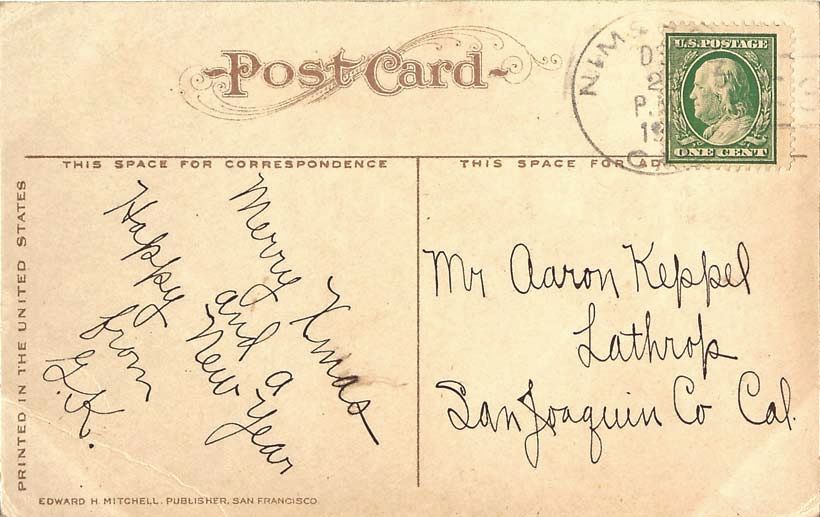 Post Card
U.S. POSTAGE
ONE CENT
P.
THIS SPACE FOR CORRESPONDENCE
THIS SPACE FOR
Merry Xmas
and a
Happy New Year
from
G.K.
Mr Aaron Keppel
Lathrop
San Joaquin Co Cal.
PRINTED IN THE UNITED STATES
EDWARD H. MITCHELL, PUBLISHER, SAN FRANCISCO